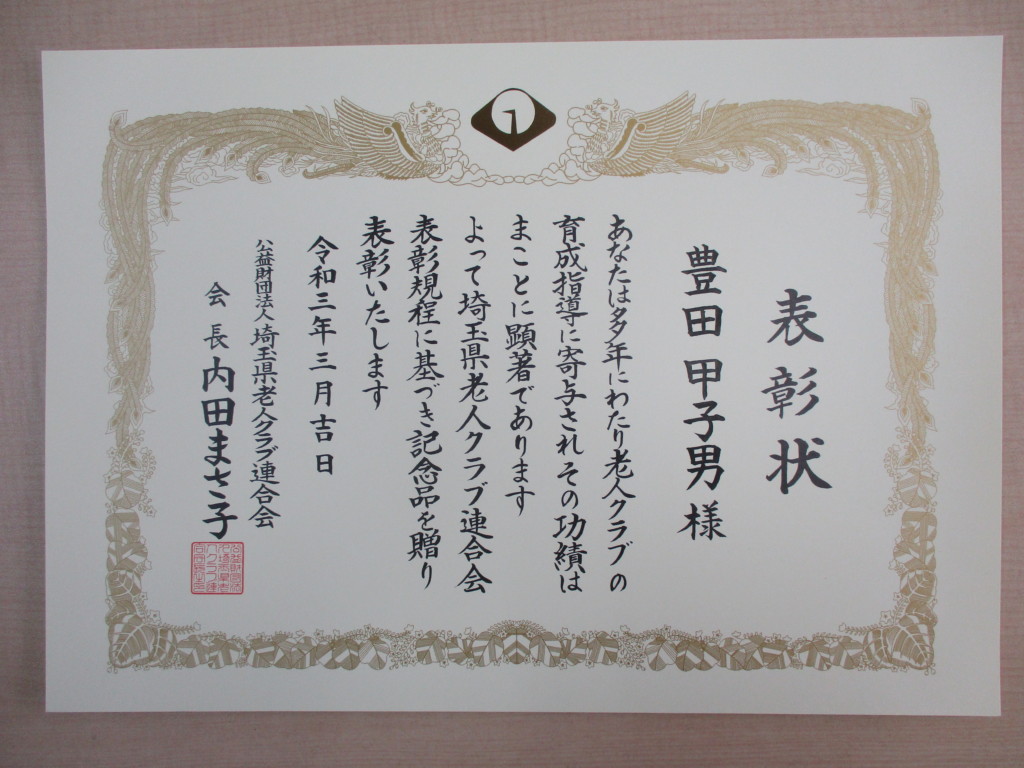 表彰状
豊田 甲子男 様
あなたは多年にわたり老人クラブの
育成指導に寄与されその功績は
まことに顕著であります
よって埼玉県老人クラブ連合会
表彰規程に基づき記念品を贈り
表彰いたします
令和三年三月吉日
公益財団法人 埼玉県老人クラブ連合会
会長 内田まさ子